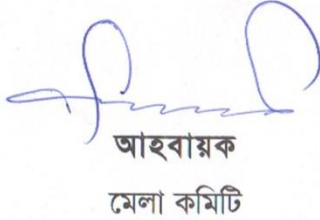 আহবায়ক
মেলা কমিটি